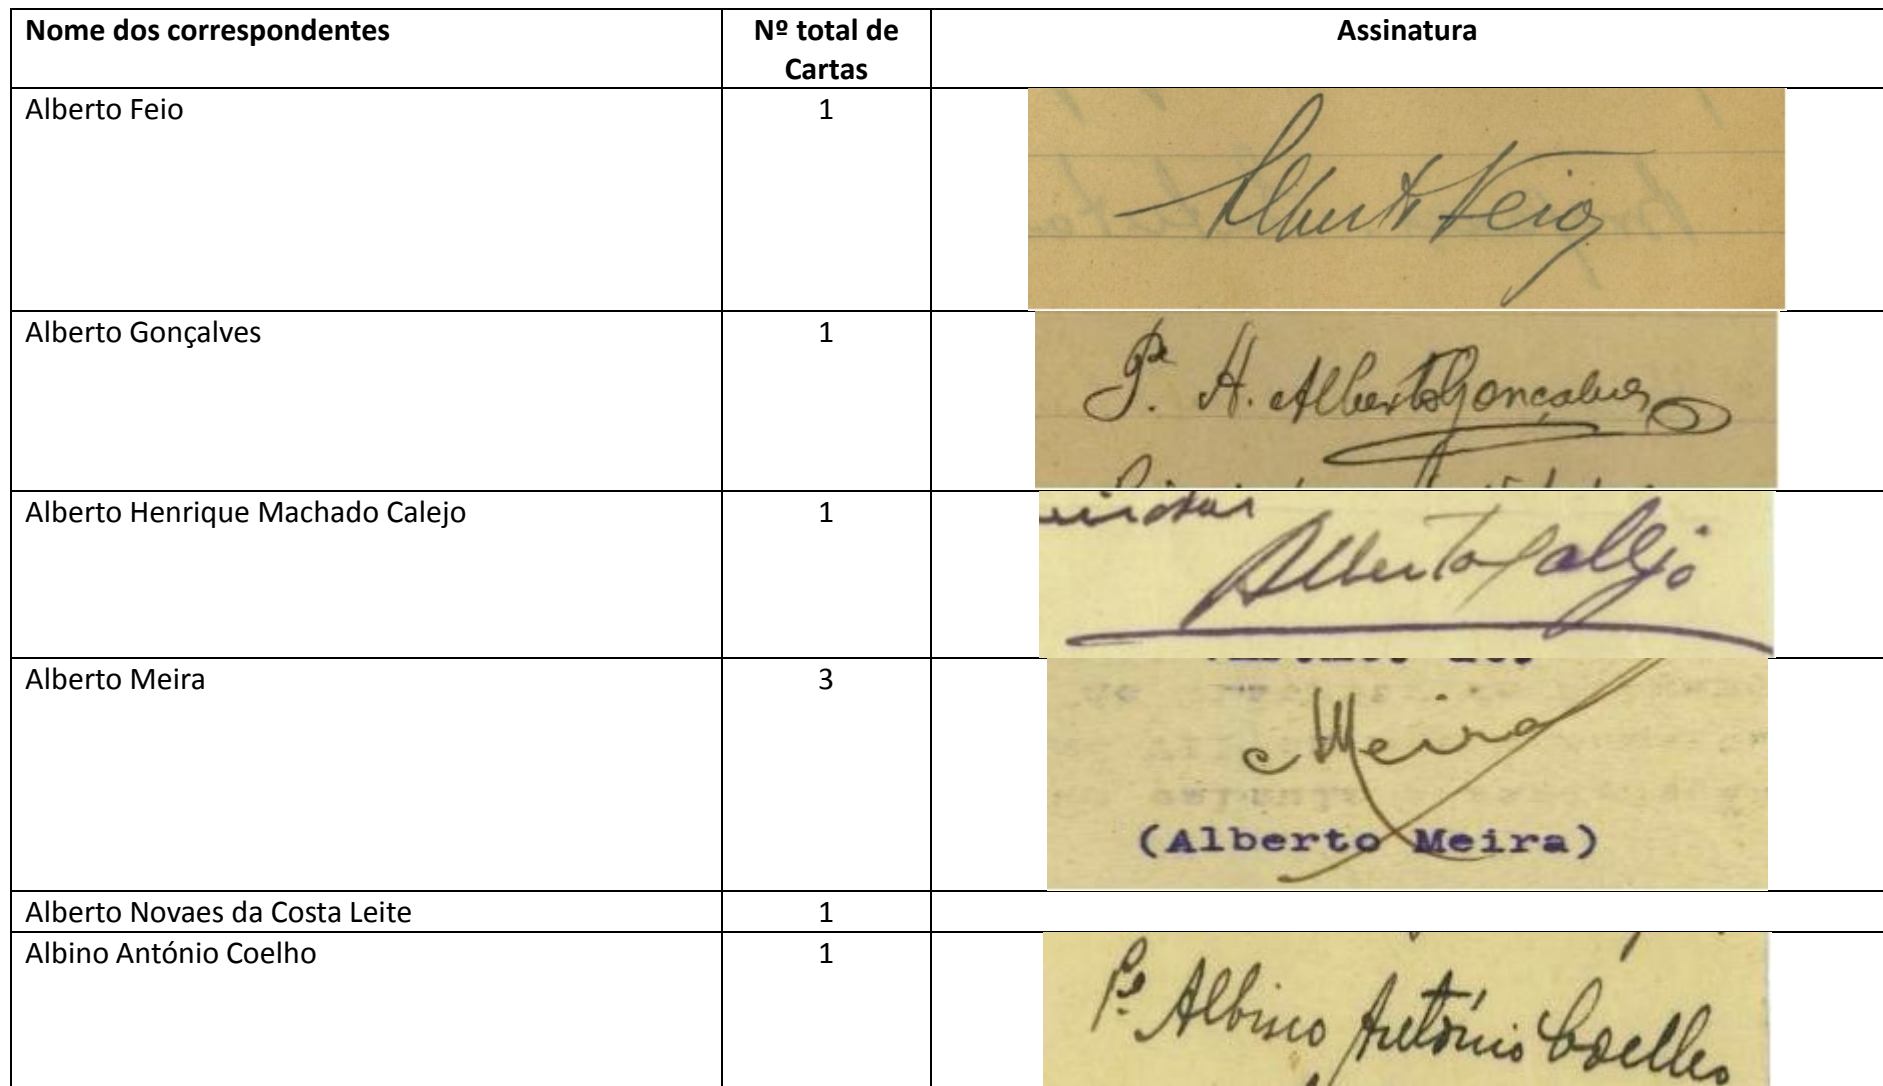 Nome dos correspondentes
Nº total de
Cartas
Assinatura
Alberto Feio
1
Alberto Feio
Alberto Gonçalves
1
Pe. A. Alberto Gonçalves
Alberto Henrique Machado Calejo
1
Alberto Calejo
Alberto Meira
3
Meira
(Alberto Meira)
Alberto Novaes da Costa Leite
1
Albino António Coelho
1
Pe. Albino António Coelho